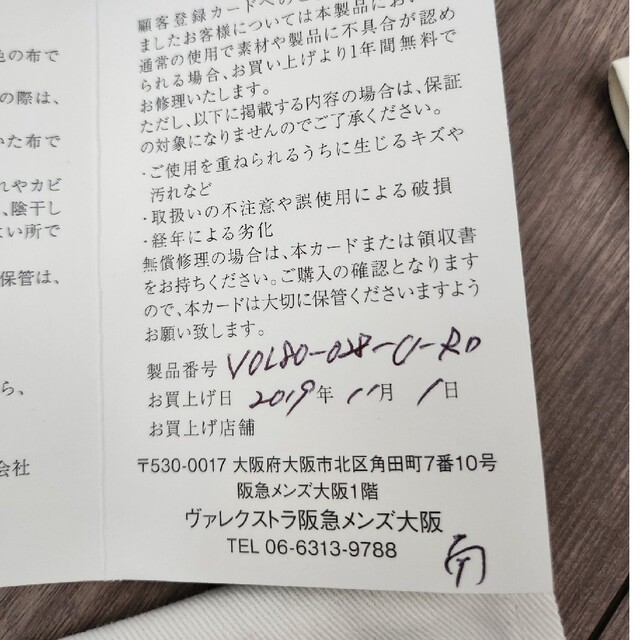 色の布で
の際は、
いた布で
れやカビ
、陰干し
よい所で
保管は、
ら、
会社
顧客登録カードへのご
ましたお客様については本製品にお
通常の使用で素材や製品に不具合が認め
られる場合、お買い上げより1年間無料で
お修理いたします。
ただし、以下に掲載する内容の場合は、保証
の対象になりませんのでご了承ください。
・ご使用を重ねられるうちに生じるキズや
汚れなど
・取扱いの不注意や誤使用による破損
・経年による劣化
無償修理の場合は、本カードまたは領収書
をお持ちください。ご購入の確認となります
ので、本カードは大切に保管くださいますよう
お願い致します。
製品番号 V0L80-028-U-RD
お買上げ日 2019年 11月 1日
お買上げ店舗
〒530-0017 大阪府大阪市北区角田町7番10号
阪急メンズ大阪1階
ヴァレクストラ阪急メンズ大阪
TEL 06-6313-9788